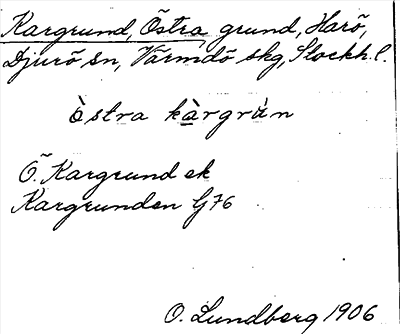 Kargrund, Östra, grund, Harö,
Djurö sn, Värmdö skg, Stockh. l.
östra kàrgrùn
Ö. Kargrund ek
Kargrunden G76
O. Lundberg 1906